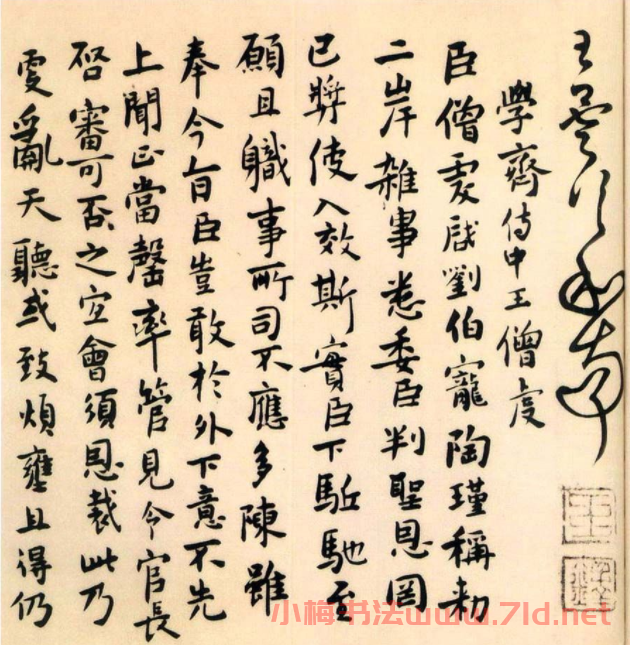 學齊侍中王僧虔
臣僧虔啟劉伯寵陶瑾稱勑
二岸雜事悉委臣判聖恩罔
已獎使入效斯實臣下駈馳至
願且職事所司不應多陳雖
奉今旨臣豈敢於外下意不先
上聞正當罄率管見今官長
啓審可否之宜會須恩裁此乃
更亂天聽或致煩壅且得仍
小梅书法www.7ld.net